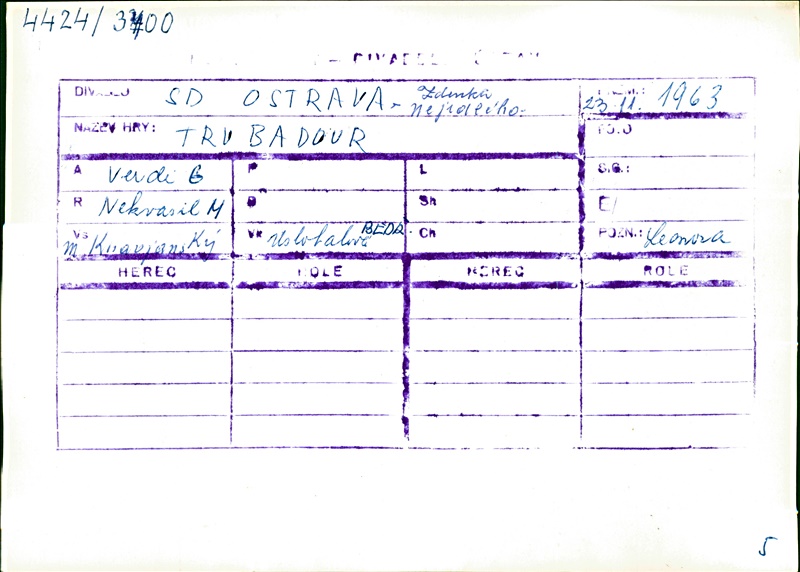 4424/3400
DIVADLO SD OSTRAVA - Zdenka Nejedlého-
23.11. 1963
NÁZEV HRY: TRUBADOUR
A Verdi G P L S.G.:
R Nekvasil M D Sh E/
Vs M Knarjanský Vk BEDR. Ch POZN.: Leonora
HEREC ROLE HEREC ROLE
5